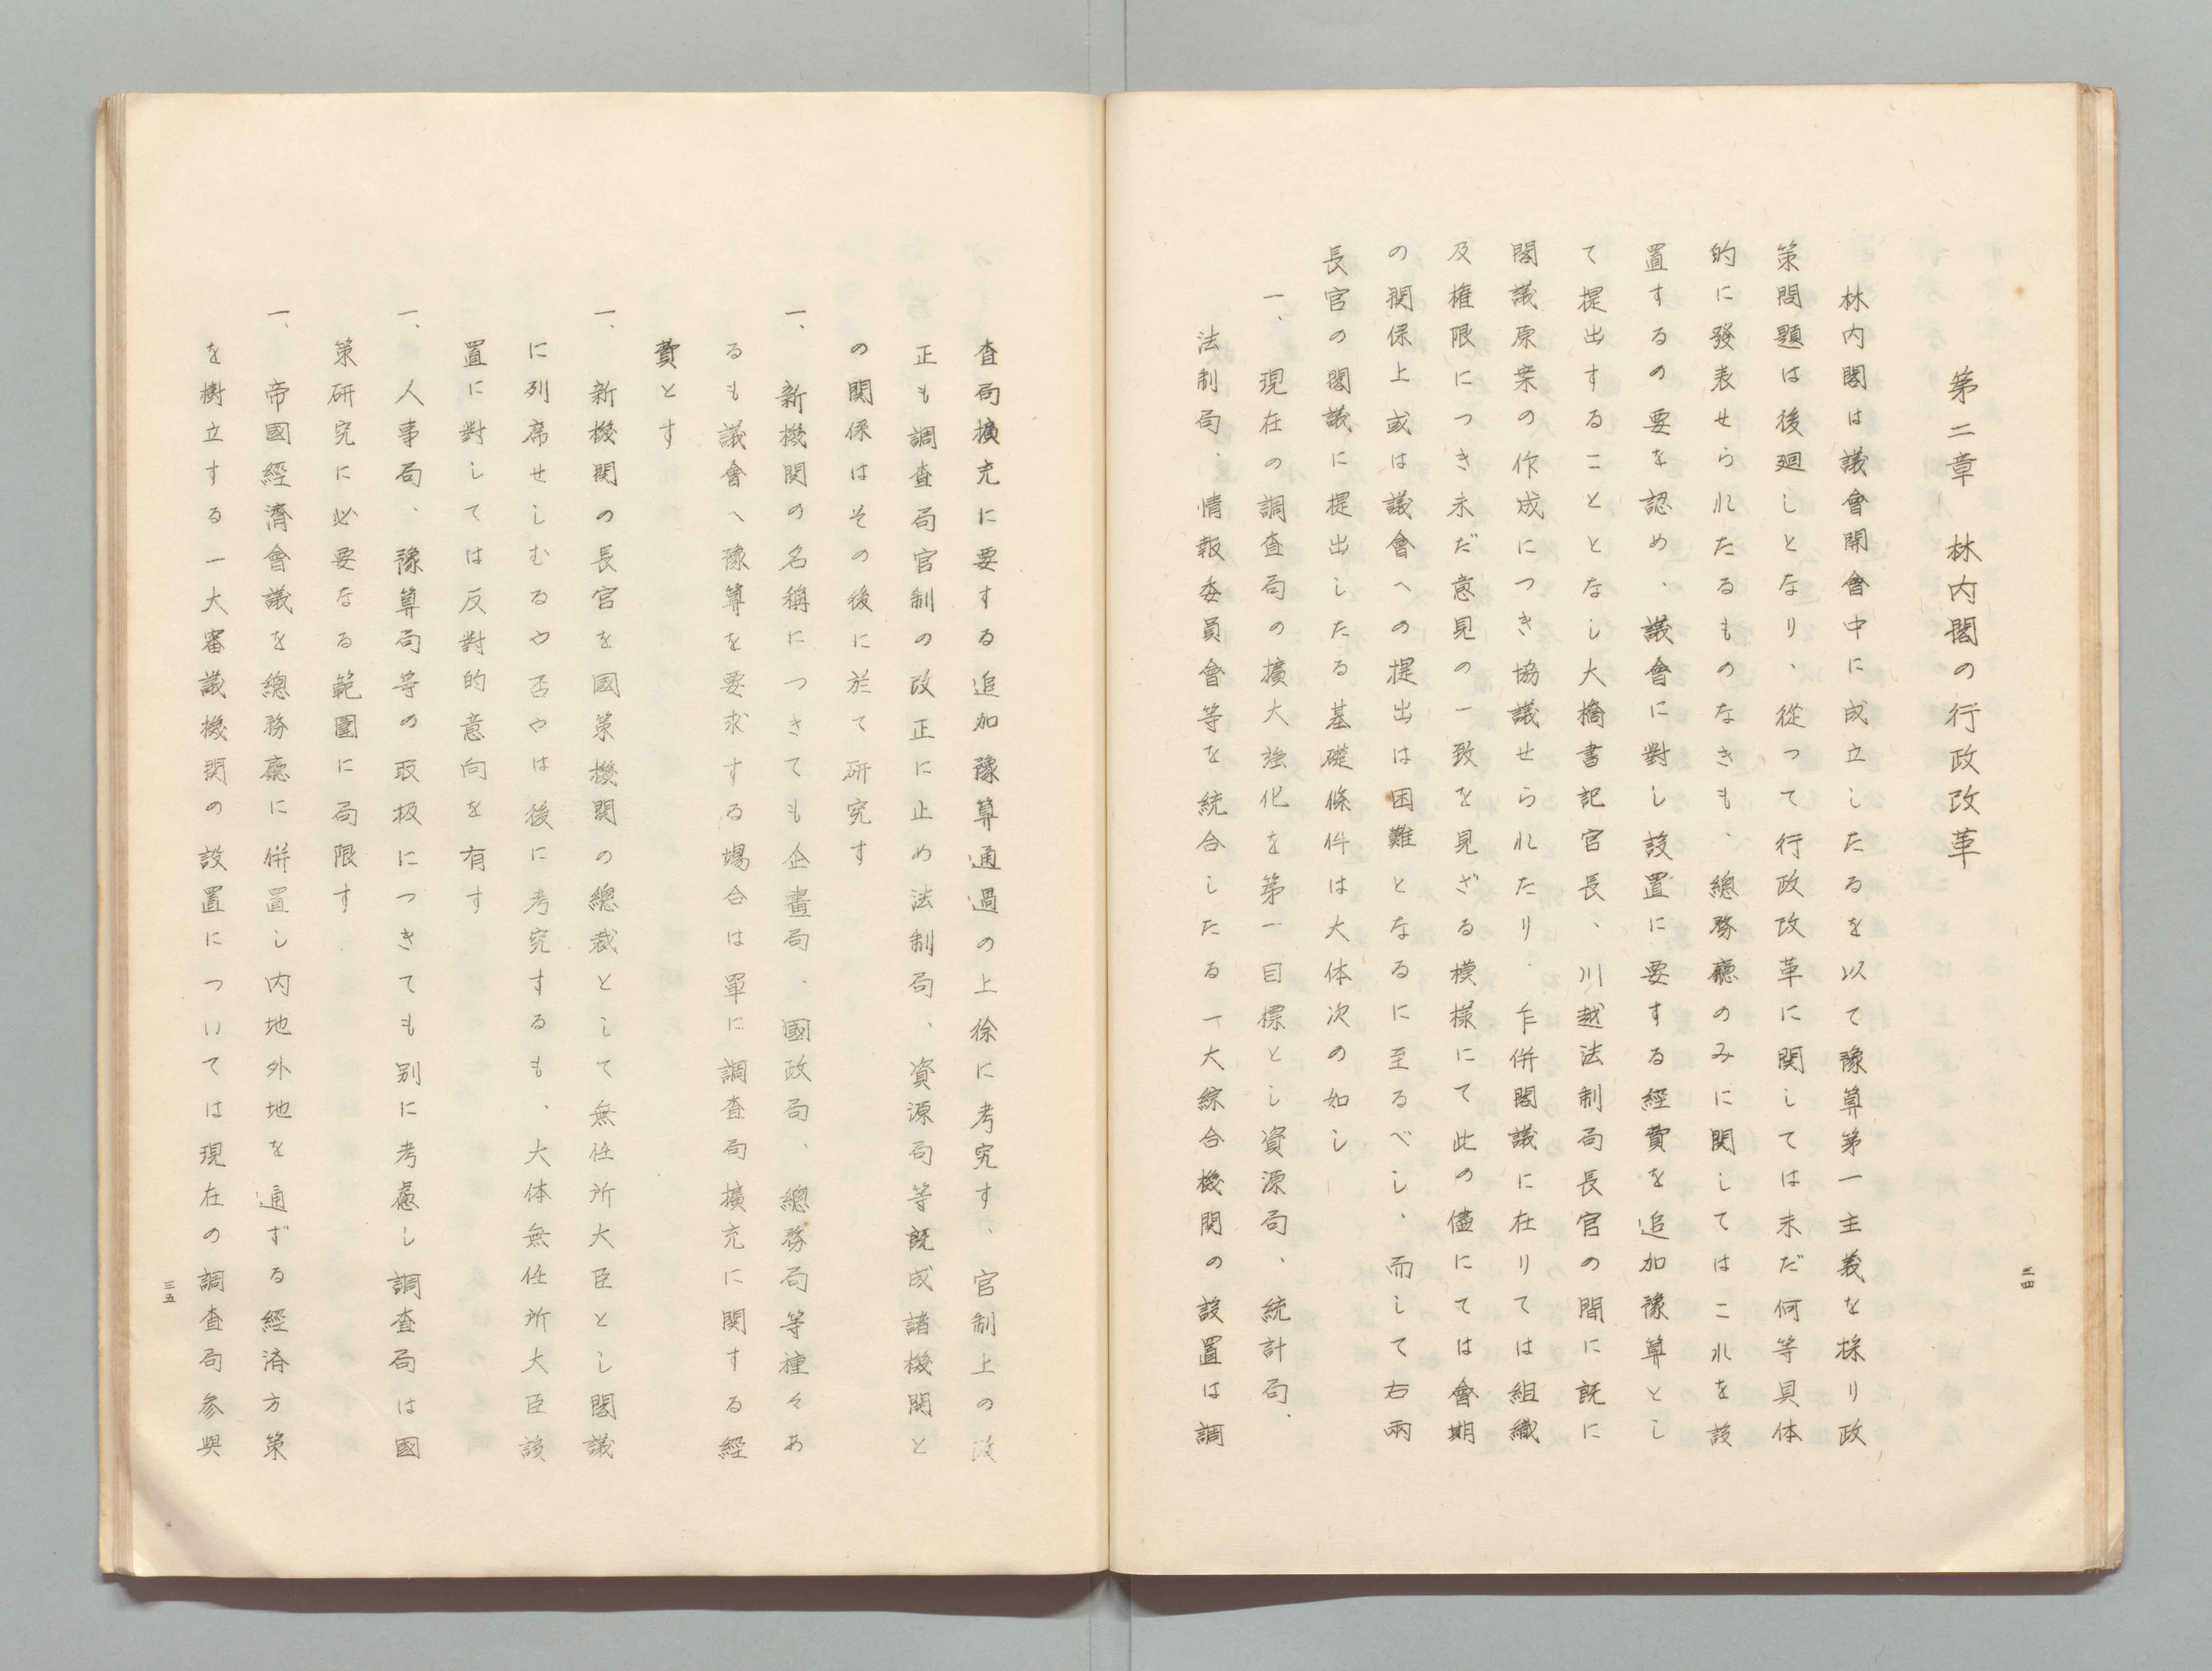 第二章　林内閣の行政改革
林内閣は議會開會中に成立したるを以て豫算第一主義を採り政
策問題は後廻しとなり、從つて行政改革に関しては未だ何等具体
的に發表せられたるものなきも、總務廳のみに関してはこれを設
置するの要を認め、議會に對し設置に要する経費を追加豫算とし
て提出することとなし大橋書記官長、川越法制局長官の間に既に
閣議原案の作成につき協議せられたり、乍併閣議に在りては組織
及権限につき未だ意見の一致を見ざる模様にて此の儘にては會期
の関係上或は議會への提出は困難となるに至るべし、而して右兩
長官の閣議に提出したる基礎條件は大体次の如し
一、現在の調査局の擴大強化を第一目標とし資源局、統計局、
法制局、情報委員會等を統合したる一大綜合機関の設置は調
二四
査局擴充に要する追加豫算通過の上徐に考究す、官制上の改
正も調査局官制の改正に止め法制局、資源局等既成諸機関と
の関係はその後に於て研究す
一、新機関の名稱につきても企畫局、國政局、總務局等種々あ
るも議會へ豫算を要求する場合は單に調査局擴充に関する経
費とす
一、新機関の長官を國策機関の總裁として無任所大臣とし閣議
に列席せしむるや否やは後に考究するも、大体無任所大臣設
置に對しては反對的意向を有す
一、人事局、豫算局等の取扱につきても別に考慮し調査局は國
策研究に必要なる範圍に局限す
一、帝國經濟會議を總務廳に併置し内地外地を通ずる経済方策
を樹立する一大審議機関の設置については現在の調査局参與
三五